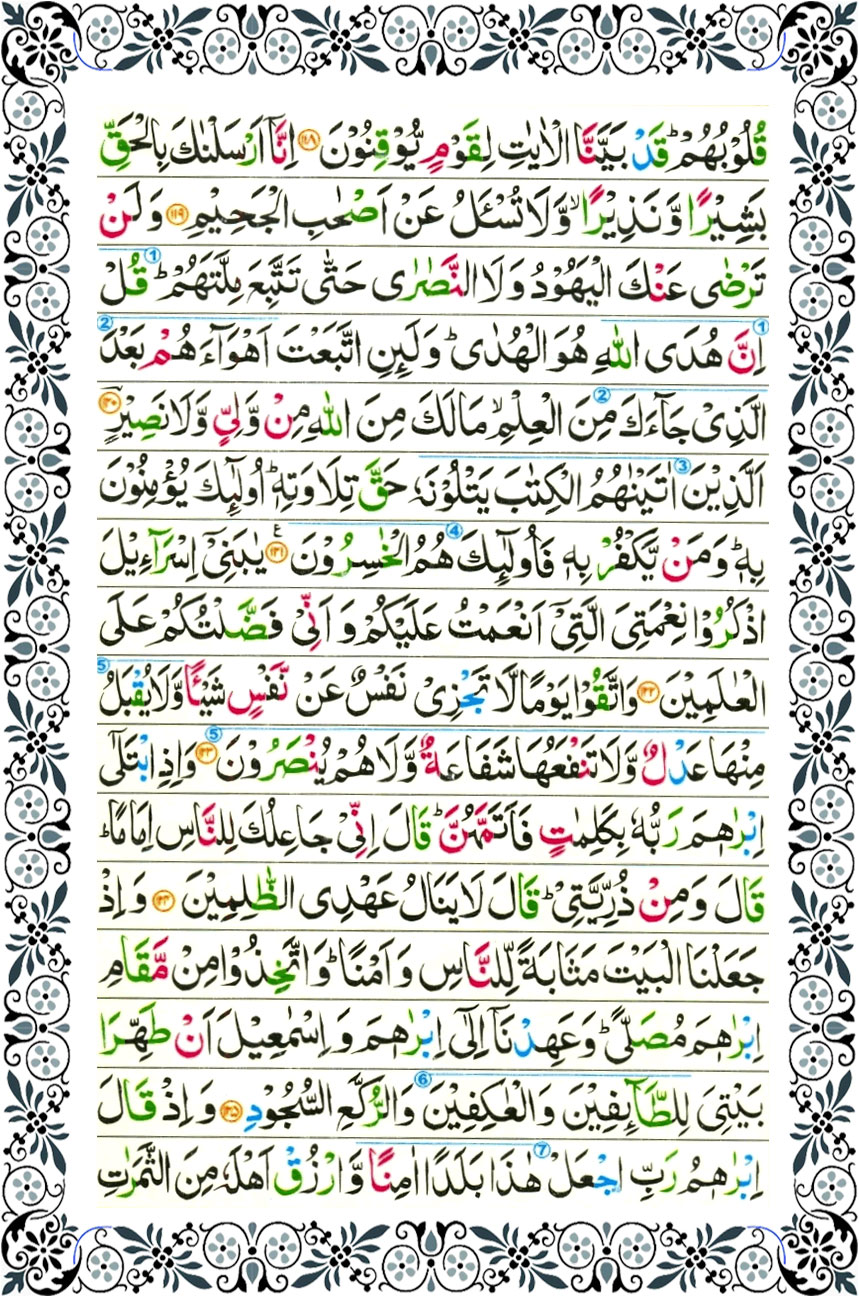 قُلُوْبُهُمْ ؕ قَدْ بَيَّنَّا الْاٰيٰتِ لِقَوْمٍ يُّوْقِنُوْنَ ۝۱۱۸ اِنَّاۤ اَرْسَلْنٰكَ بِالْحَقِّ
بَشِيْرًا وَّ نَذِيْرًا ۙ وَّلَا تُسْـَٔلُ عَنْ اَصْحٰبِ الْجَحِيْمِ ۝۱۱۹ وَ لَنْ
تَرْضٰى عَنْكَ الْيَهُوْدُ وَ لَا النَّصٰرٰى حَتّٰى تَتَّبِعَ مِلَّتَهُمْ ؕ قُلْ
اِنَّ هُدَى اللّٰهِ هُوَ الْهُدٰى ؕ وَ لَئِنِ اتَّبَعْتَ اَهْوَآءَهُمْ بَعْدَ
الَّذِيْ جَآءَكَ مِنَ الْعِلْمِ ۙ مَا لَكَ مِنَ اللّٰهِ مِنْ وَّلِيٍّ وَّ لَا نَصِيْرٍ ۝۱۲۰
اَلَّذِيْنَ اٰتَيْنٰهُمُ الْكِتٰبَ يَتْلُوْنَهٗ حَقَّ تِلَاوَتِهٖ ؕ اُولٰٓئِكَ يُؤْمِنُوْنَ
بِهٖ ؕ وَ مَنْ يَّكْفُرْ بِهٖ فَاُولٰٓئِكَ هُمُ الْخٰسِرُوْنَ ۝۱۲۱ ع يٰبَنِيْۤ اِسْرَآءِيْلَ
اذْكُرُوْا نِعْمَتِيَ الَّتِيْۤ اَنْعَمْتُ عَلَيْكُمْ وَ اَنِّيْ فَضَّلْتُكُمْ عَلَى
الْعٰلَمِيْنَ ۝۱۲۲ وَ اتَّقُوْا يَوْمًا لَّا تَجْزِيْ نَفْسٌ عَنْ نَّفْسٍ شَيْـًٔا وَّ لَا يُقْبَلُ
مِنْهَا عَدْلٌ وَّ لَا تَنْفَعُهَا شَفَاعَةٌ وَّ لَا هُمْ يُنْصَرُوْنَ ۝۱۲۳ وَ اِذِ ابْتَلٰۤى
اِبْرٰهٖمَ رَبُّهٗ بِكَلِمٰتٍ فَاَتَمَّهُنَّ ؕ قَالَ اِنِّيْ جَاعِلُكَ لِلنَّاسِ اِمَامًا ؕ
قَالَ وَ مِنْ ذُرِّيَّتِيْ ؕ قَالَ لَا يَنَالُ عَهْدِي الظّٰلِمِيْنَ ۝۱۲۴ وَ اِذْ
جَعَلْنَا الْبَيْتَ مَثَابَةً لِّلنَّاسِ وَ اَمْنًا ؕ وَ اتَّخِذُوْا مِنْ مَّقَامِ
اِبْرٰهٖمَ مُصَلًّى ؕ وَ عَهِدْنَاۤ اِلٰۤى اِبْرٰهٖمَ وَ اِسْمٰعِيْلَ اَنْ طَهِّرَا
بَيْتِيَ لِلطَّآئِفِيْنَ وَ الْعٰكِفِيْنَ وَ الرُّكَّعِ السُّجُوْدِ ۝۱۲۵ وَ اِذْ قَالَ
اِبْرٰهٖمُ رَبِّ اجْعَلْ هٰذَا بَلَدًا اٰمِنًا وَّ ارْزُقْ اَهْلَهٗ مِنَ الثَّمَرٰتِ